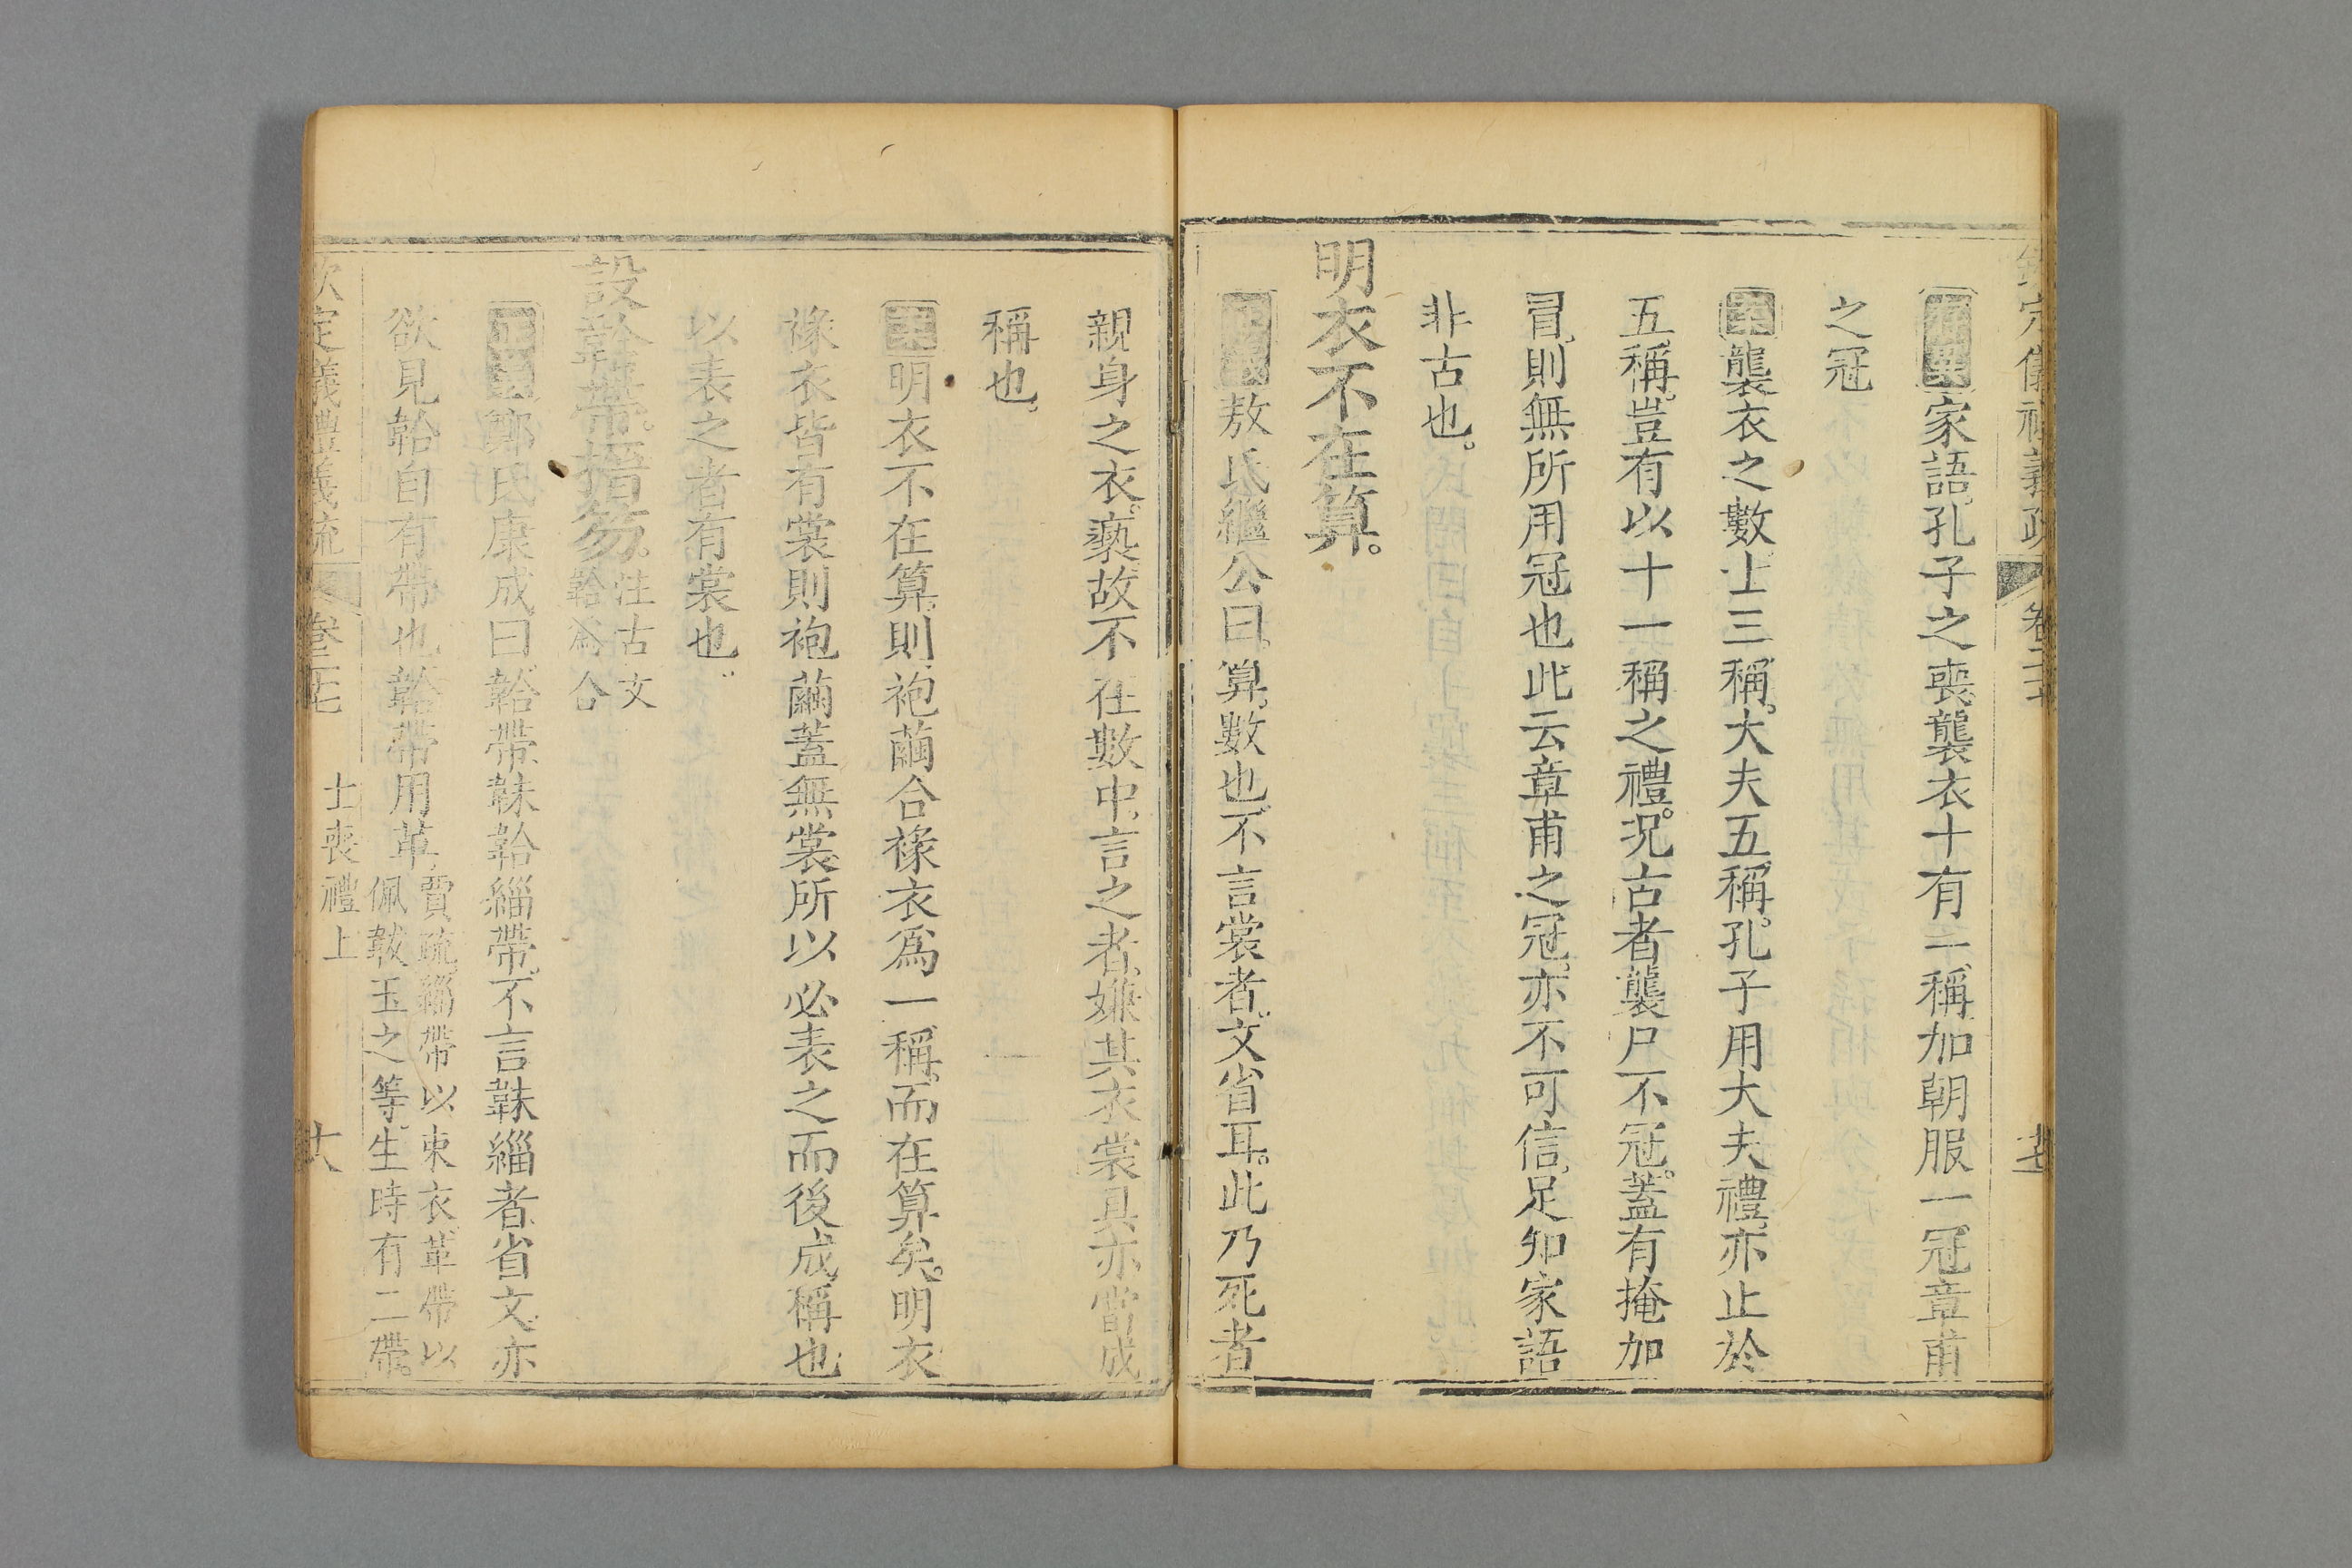 欽定儀禮義疏 卷二十七 七
存異家語孔子之喪襲衣十有一稱加朝服一冠章甫
之冠
案襲衣之數士三稱大夫五稱孔子用大夫禮亦止於
五稱豈有以十一稱之禮況古者襲尸不冠蓋有掩加
冒則無所用冠也此云章甫之冠亦不可信足知家語
非古也
明衣不在算
敖氏繼公曰算數也不言裳者文省耳此乃死者
親身之衣褻故不在數中言之者嫌其衣裳具亦當成
稱也
案明衣不在算則袍繭合褖衣為一稱而在算矣明衣
褖衣皆有裳則袍繭蓋無裳所以必表之而後成稱也
以表之者有裳也
設韐帶搢笏注古文韐為合
正義鄭氏康成曰韐帶韎韐緇帶不言韎緇者省文亦
欲見韐自有帶也韐帶用革賈疏緇帶以束衣革帶以佩韍玉之等生時有二帶
欽定儀禮義疏 卷二十七 士喪禮上 大